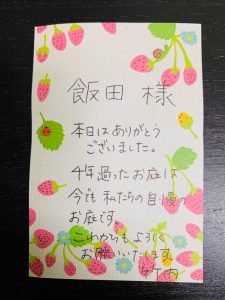 飯田 様
本日はありがとう
ございました。
4年過ったお庭は
今でも私たちの自慢の
お庭です。
これからもよろしく
お願いいたします。
竹内